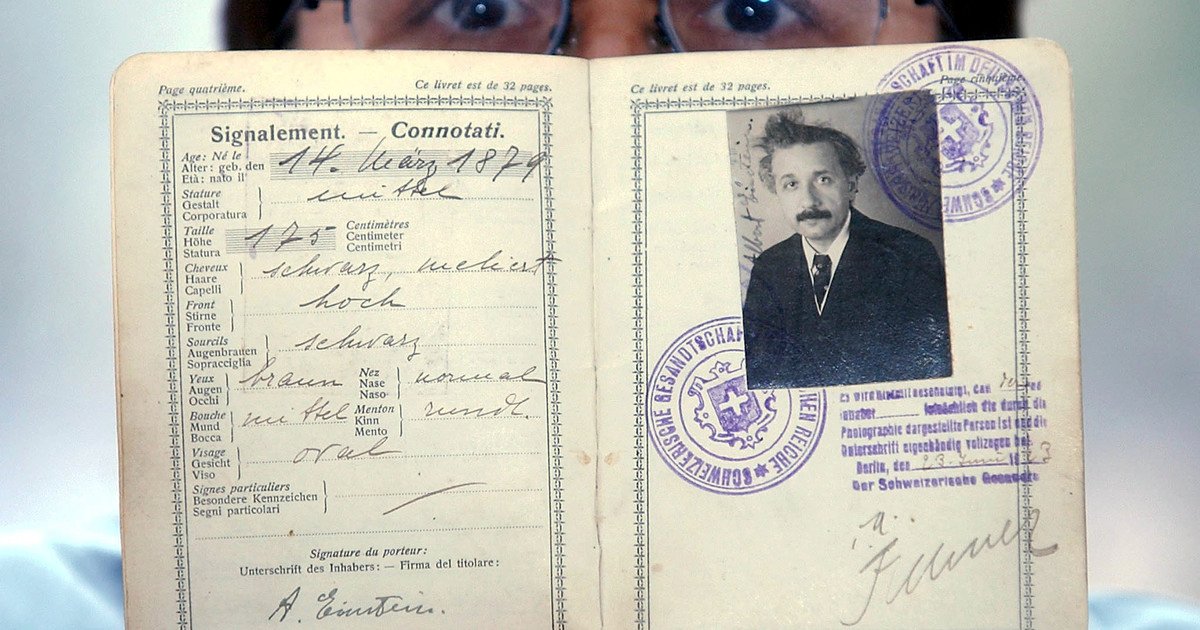 Page quatrième.
Ce livret est de 32 pages.
Signalement. — Connotati.
Age: Né le
Alter: geb. den
Età: nato il
14. März 1879
Stature
Gestalt
Corporatura
mittel
Taille
Höhe
Statura
175
Centimètres
Centimeter
Centimetri
Cheveux
Haare
Capelli
schwarz, meliert
Front
Stirne
Fronte
hoch
Sourcils
Augenbrauen
Sopracciglia
schwarz
Yeux
Augen
Occhi
braun
Nez
Nase
Naso
normal
Bouche
Mund
Bocca
mittel
Menton
Kinn
Mento
rundl.
Visage
Gesicht
Viso
oval
Signes particuliers
Besondere Kennzeichen
Segni particolari
Signature du porteur:
Unterschrift des Inhabers: — Firma del titolare:
A. Einstein.
Ce livret est de 32 pages.
Page cinquième.
Albert Einstein
SCHAFT IM DEUTSCHEN REICHE ★ SCHWEIZ
SCHWEIZERISCHE GESANDTSCHAF
CHEN REICHE ★
Es wird hiermit bescheinigt, das der
Inhaber
die durch die
Photographie dargestellte Person ist und die
Unterschrift eigenhändig vollzogen hat.
Berlin, den 23. Juni 1923
Der Schweizerische Gesandte
i. A.